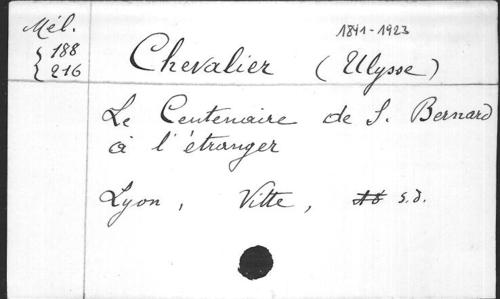 Mél.
188
216
1841-1923
Chevalier (Ulysse)
Le Centenaire de S. Bernard
à l'étranger
Lyon, Vitte, s.d.